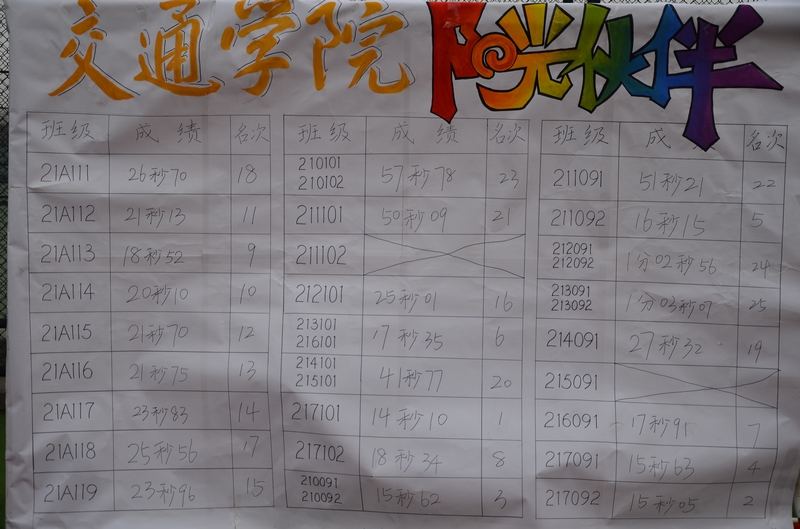 交通学院 阳光伙伴
班级 成绩 名次
21A111 26秒70 18
21A112 21秒13 11
21A113 18秒52 9
21A114 20秒10 10
21A115 21秒70 12
21A116 21秒75 13
21A117 23秒83 14
21A118 25秒56 17
21A119 23秒96 15
班级 成绩 名次
210101
210102 57秒78 23
211101 50秒09 21
211102
212101 25秒01 16
213101
216101 17秒35 6
214101
215101 41秒77 20
217101 14秒10 1
217102 18秒34 8
210091
210092 15秒62 3
班级 成 名次
211091 51秒21 22
211092 16秒15 5
212091
212092 1分02秒56 24
213091
213092 1分03秒07 25
214091 27秒32 19
215091
216091 17秒91 7
217091 15秒63 4
217092 15秒05 2